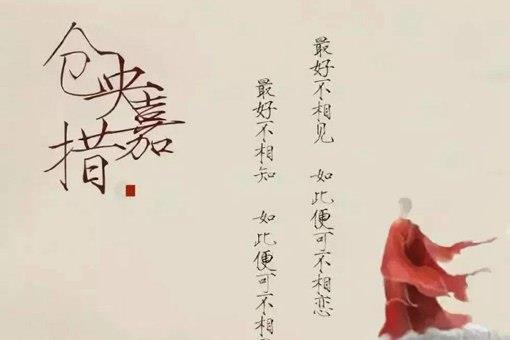 仓央嘉措
最好不相见 如此便可不相恋
最好不相知 如此便可不相